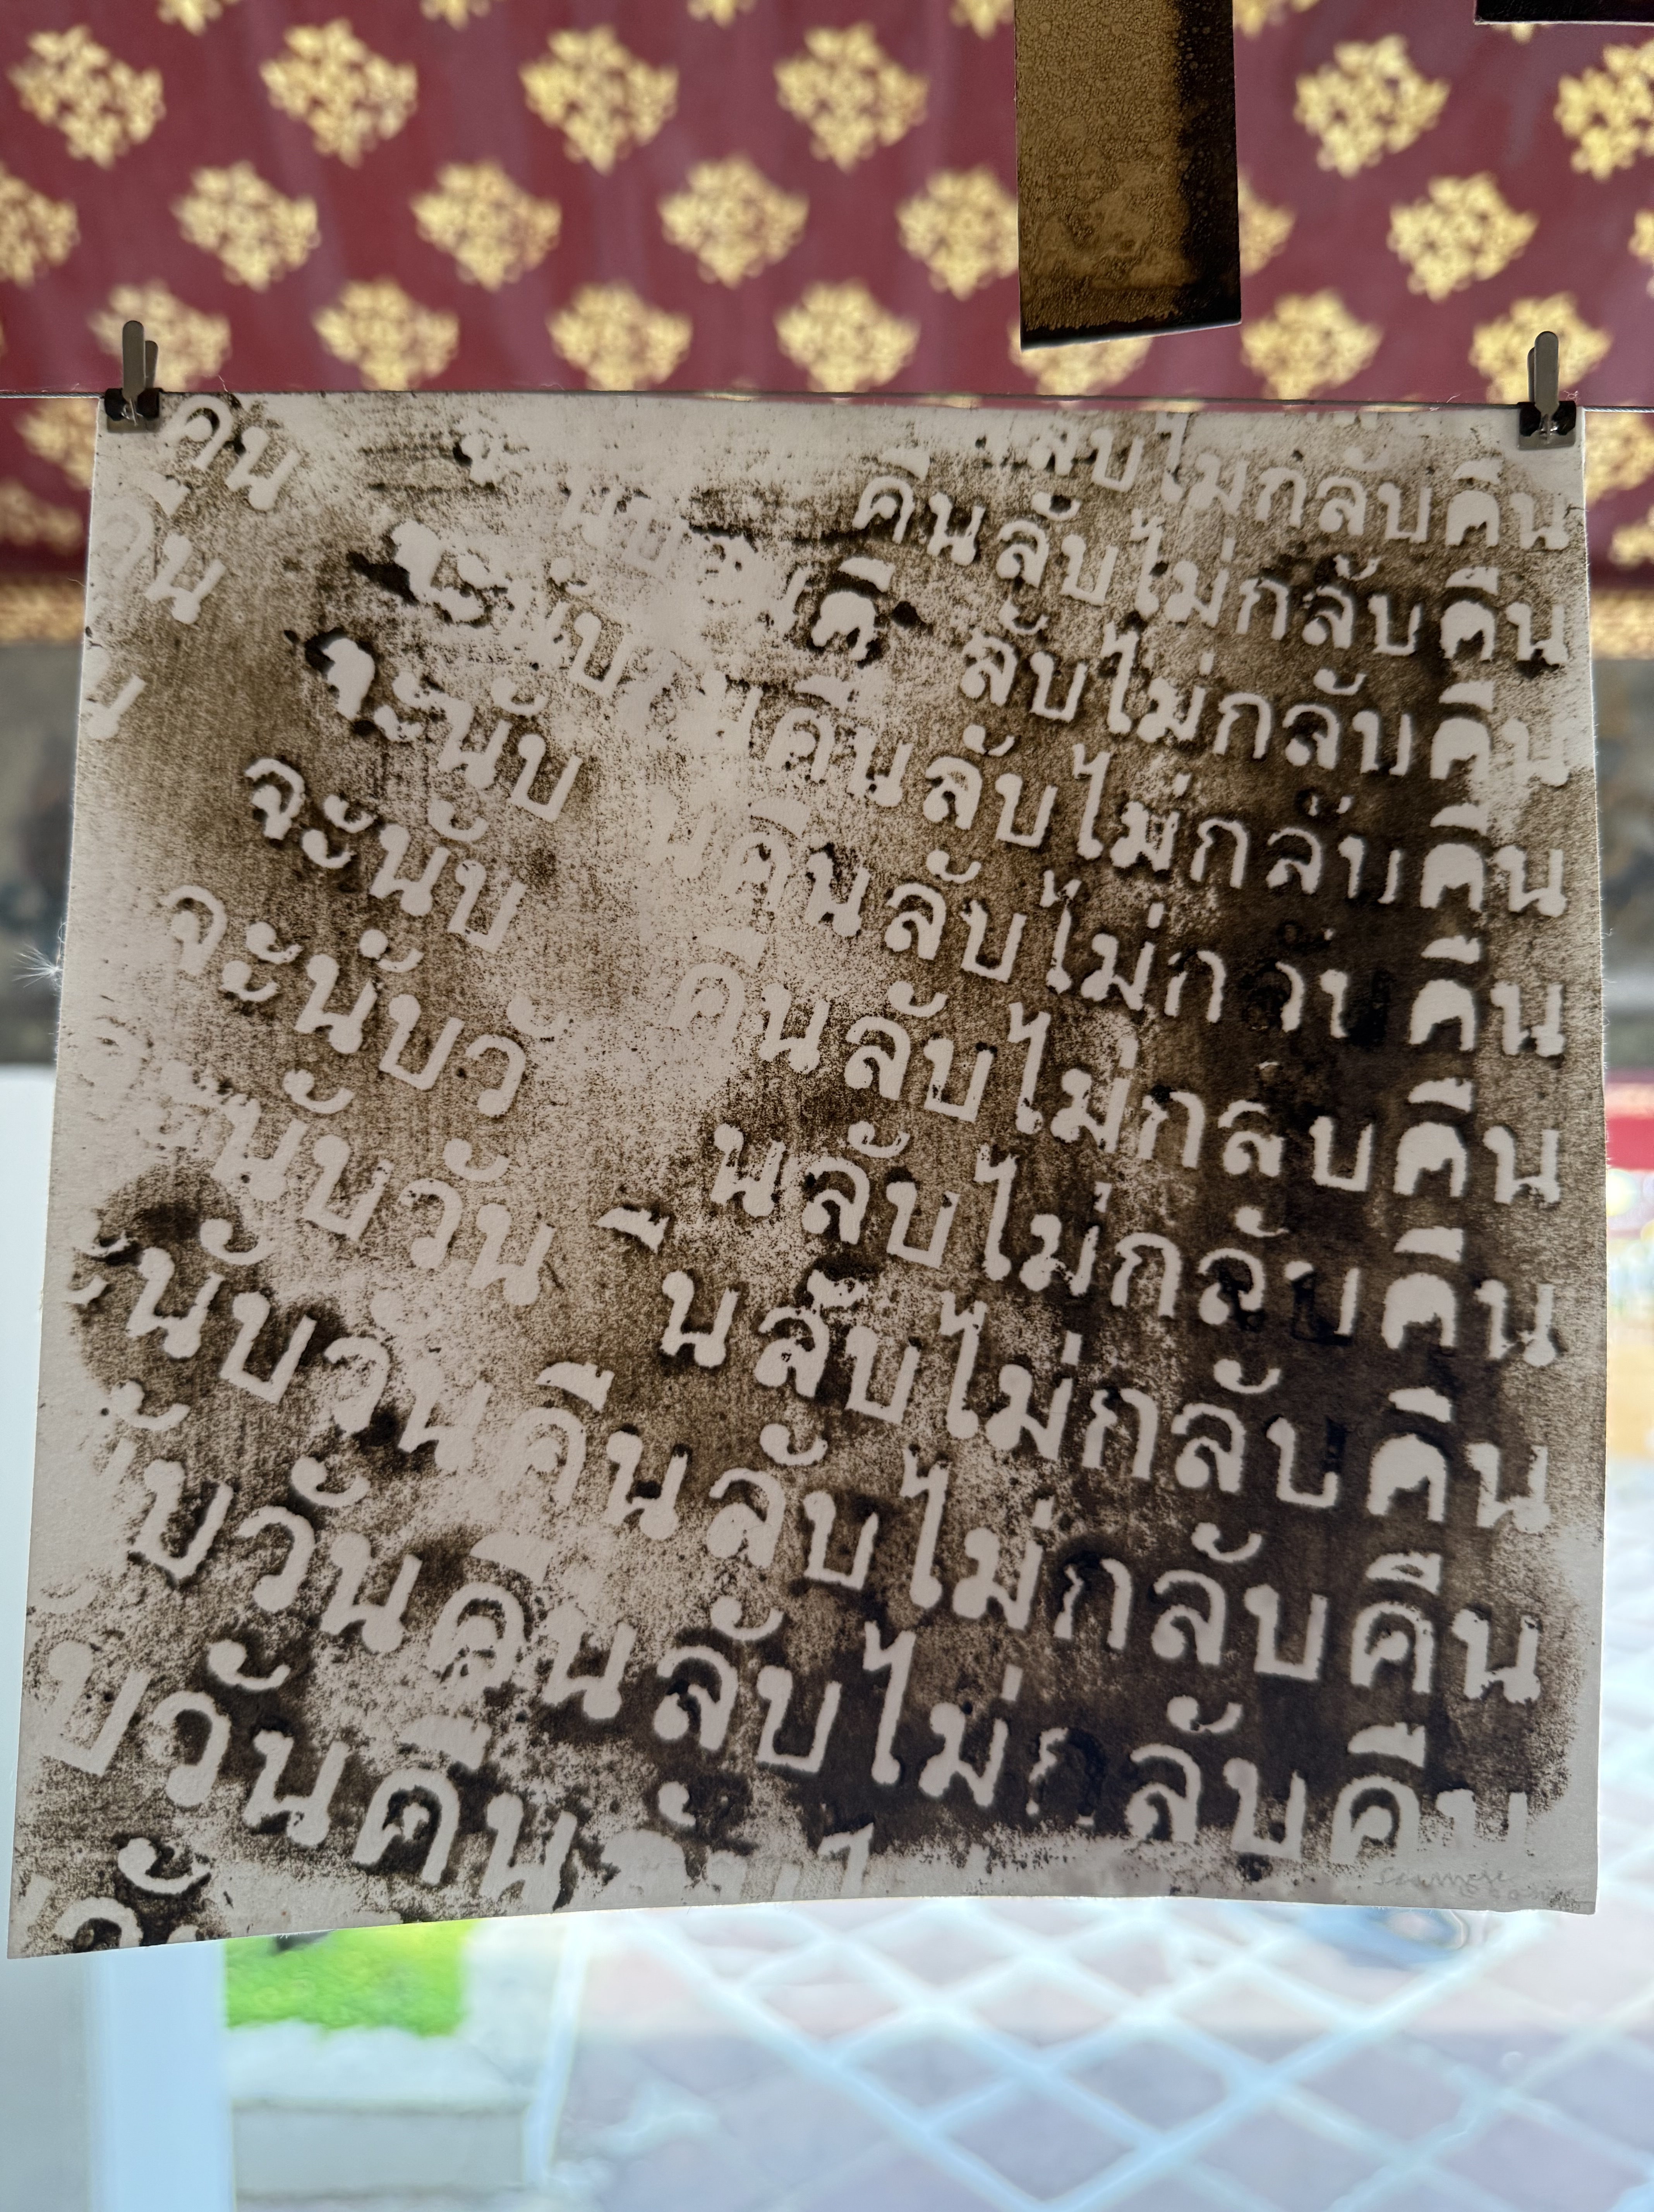 คืน
ลับไม่กลับคืน
คืน
คืนลับไม่กลับคืน
น
คื ลับไม่กลับคืน
จะนับ คืนลับไม่กลับคืน
จะนับ นคืนลับไม่กลับคืน
จะนับ คืนลับไม่กลับคืน
จะนับวั นลับไม่กลับคืน
นับวัน ืนลับไม่กลับคืน
ะนับวันคืนลับไม่กลับคืน
ับวันคืนลับไม่กลับคืน
บวันคืนลับไ
วั